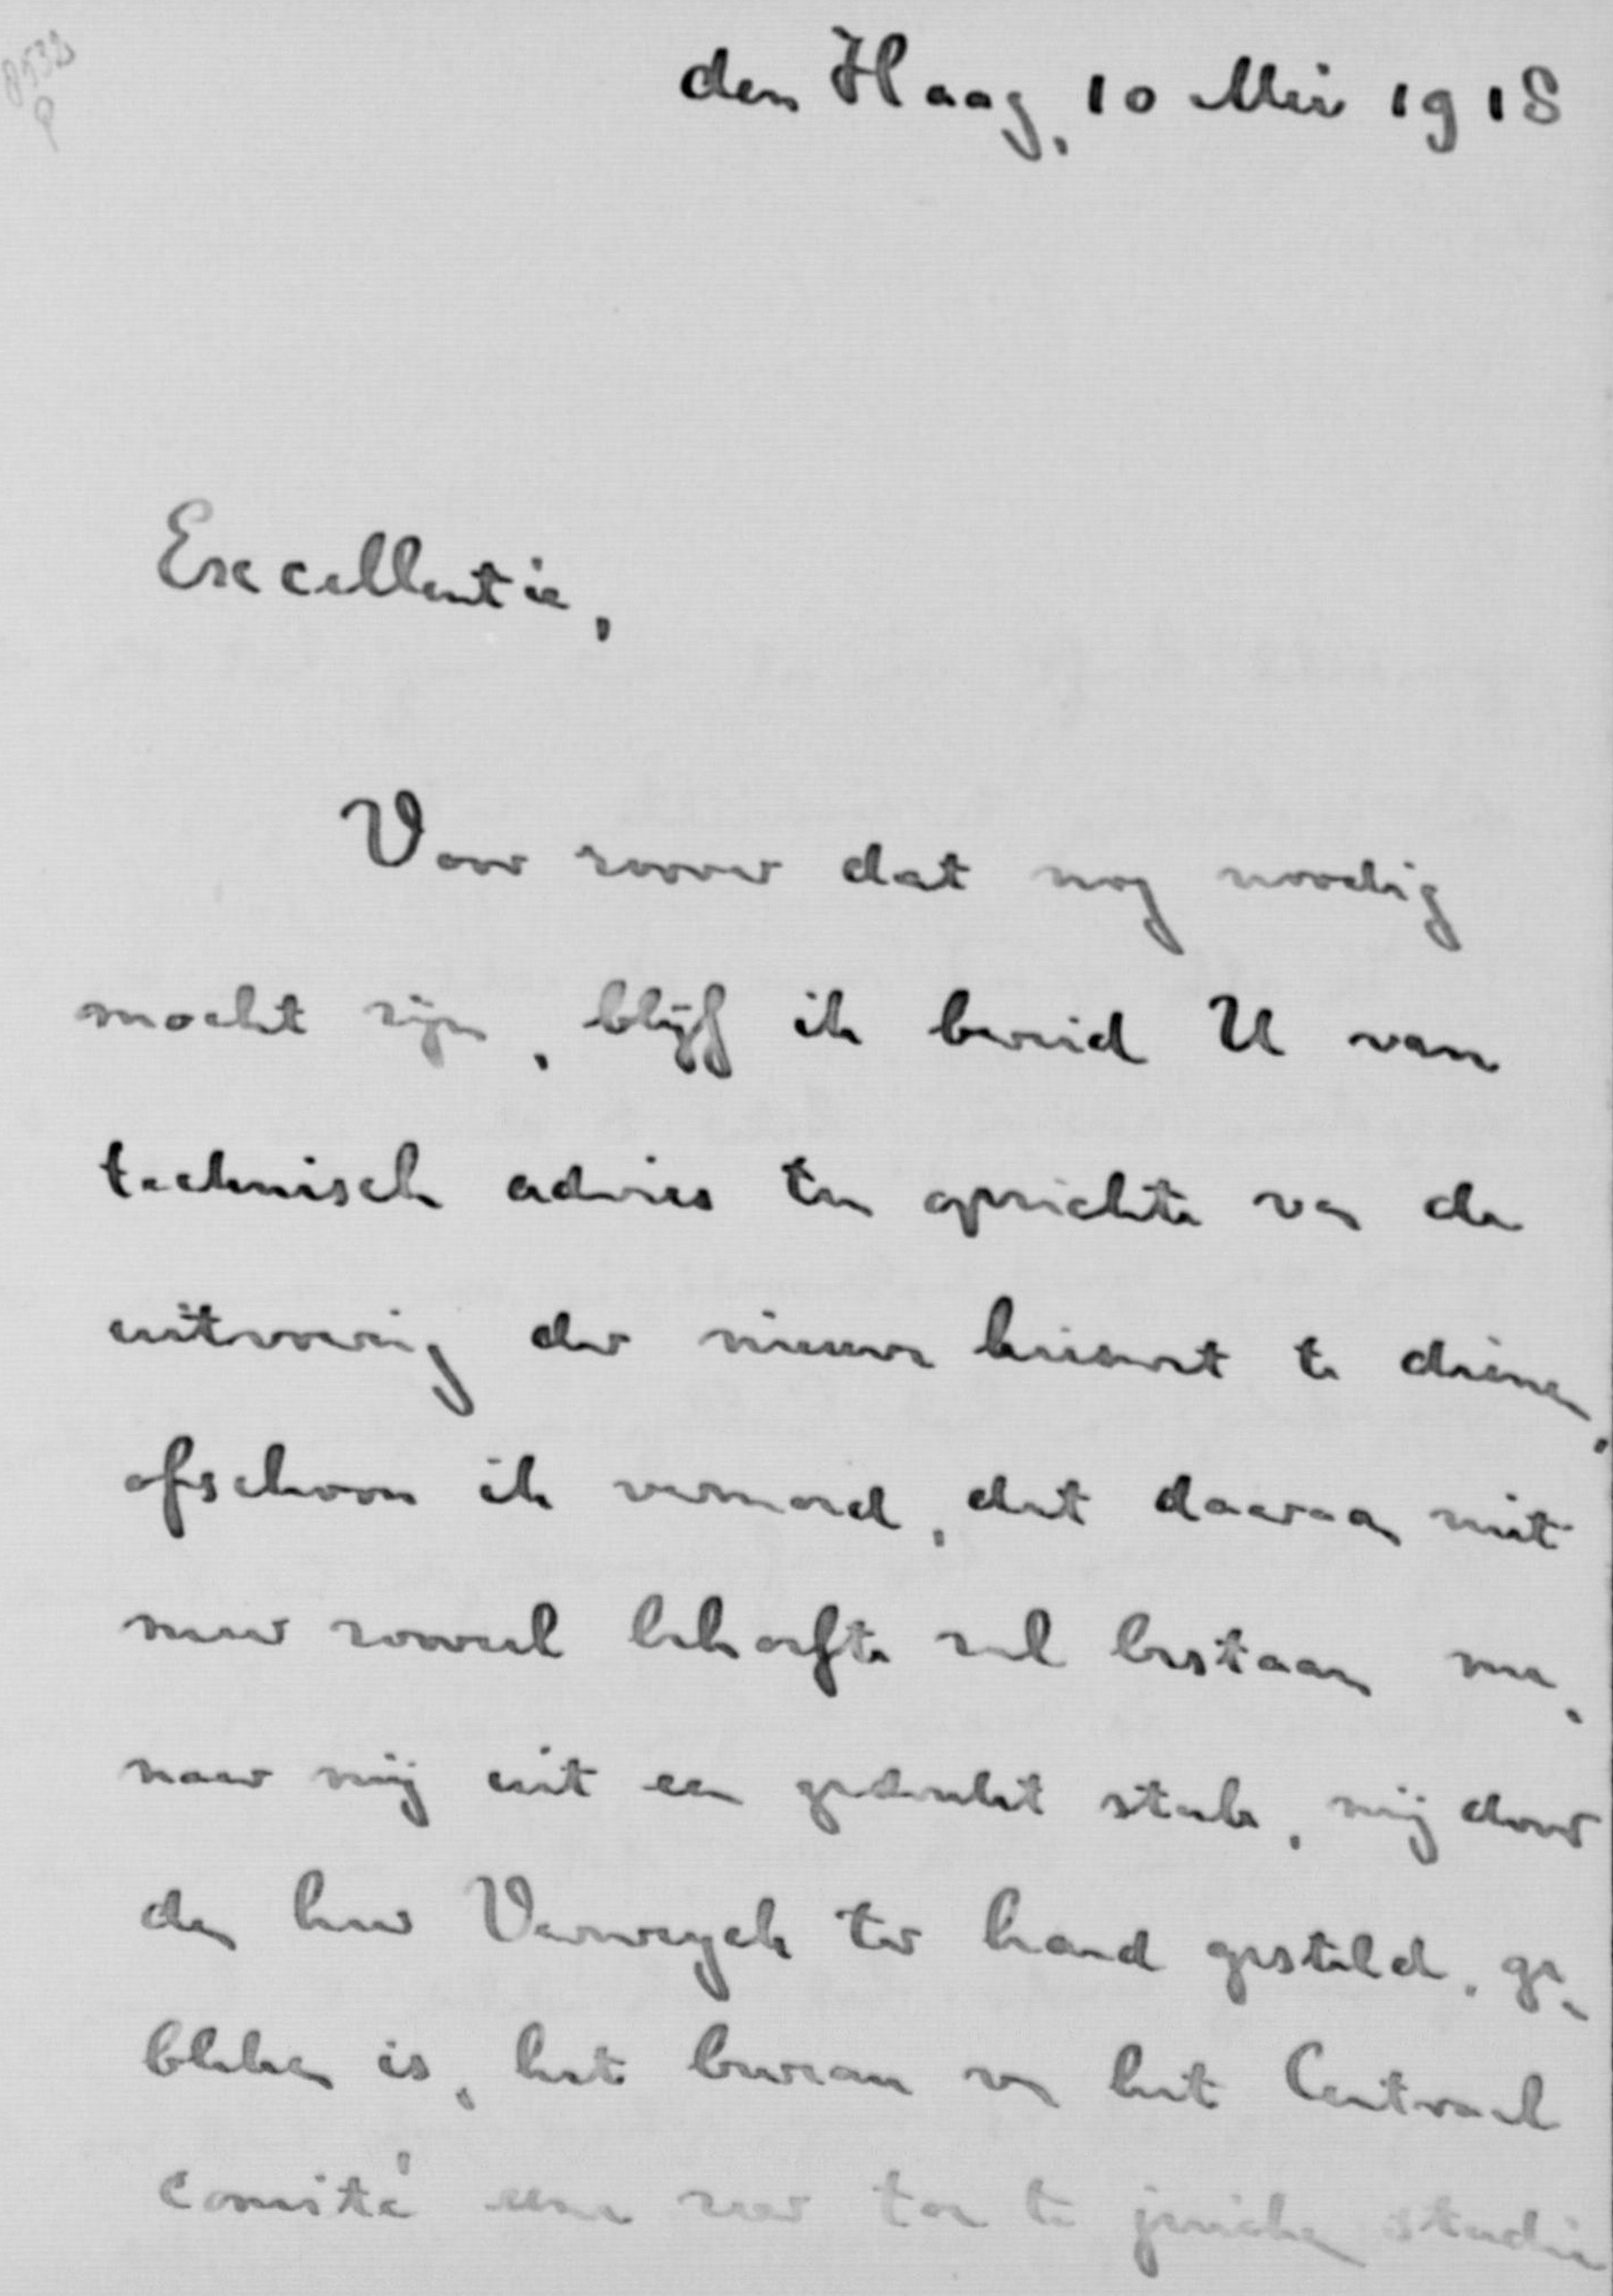 8532
9
den Haag, 10 Mei 1918
Excellentie,
Voor zoover dat nog noodig
mocht zijn, blijf ik bereid U van
technisch advies ten opzichte van de
uitvoering der nieuwe kieswet te dienen,
ofschoon ik vermoed, dat daaraan niet
meer zooveel behoefte zal bestaan nu,
naar mij uit een gedrukt stuk, mij door
den heer Verweyck ter hand gesteld, ge-
bleken is, het bureau van het Centraal
comité eene zeer toe te juichen studie